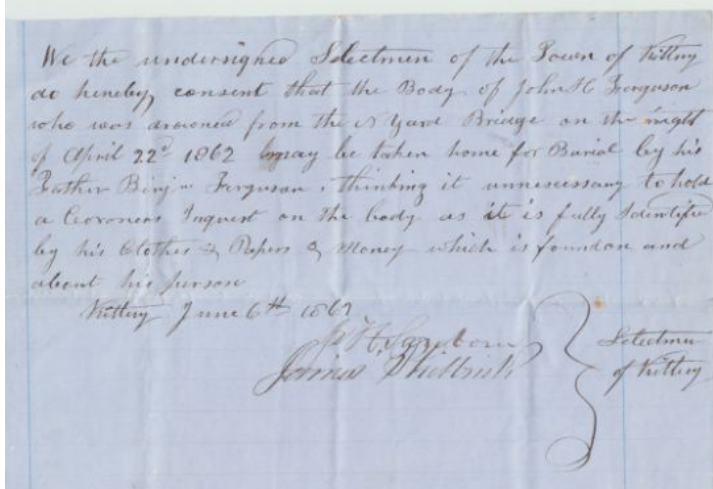 We the undersigned Selectmen of the Town of Kittery
do hereby consent that the Body of John H Ferguson
who was drowned from the N Yard Bridge on the night
of April 22d 1862 may be taken home for Burial by his
Father Benjn Ferguson, thinking it unnescessary to hold
a Coroners Inquest on the body as it is fully Identifie
by his Clothes & Papers & Money which is found on and
about his person
Kittery June 6th 1862
H Sanborn
James Philbrick
Selectmen
of Kittery